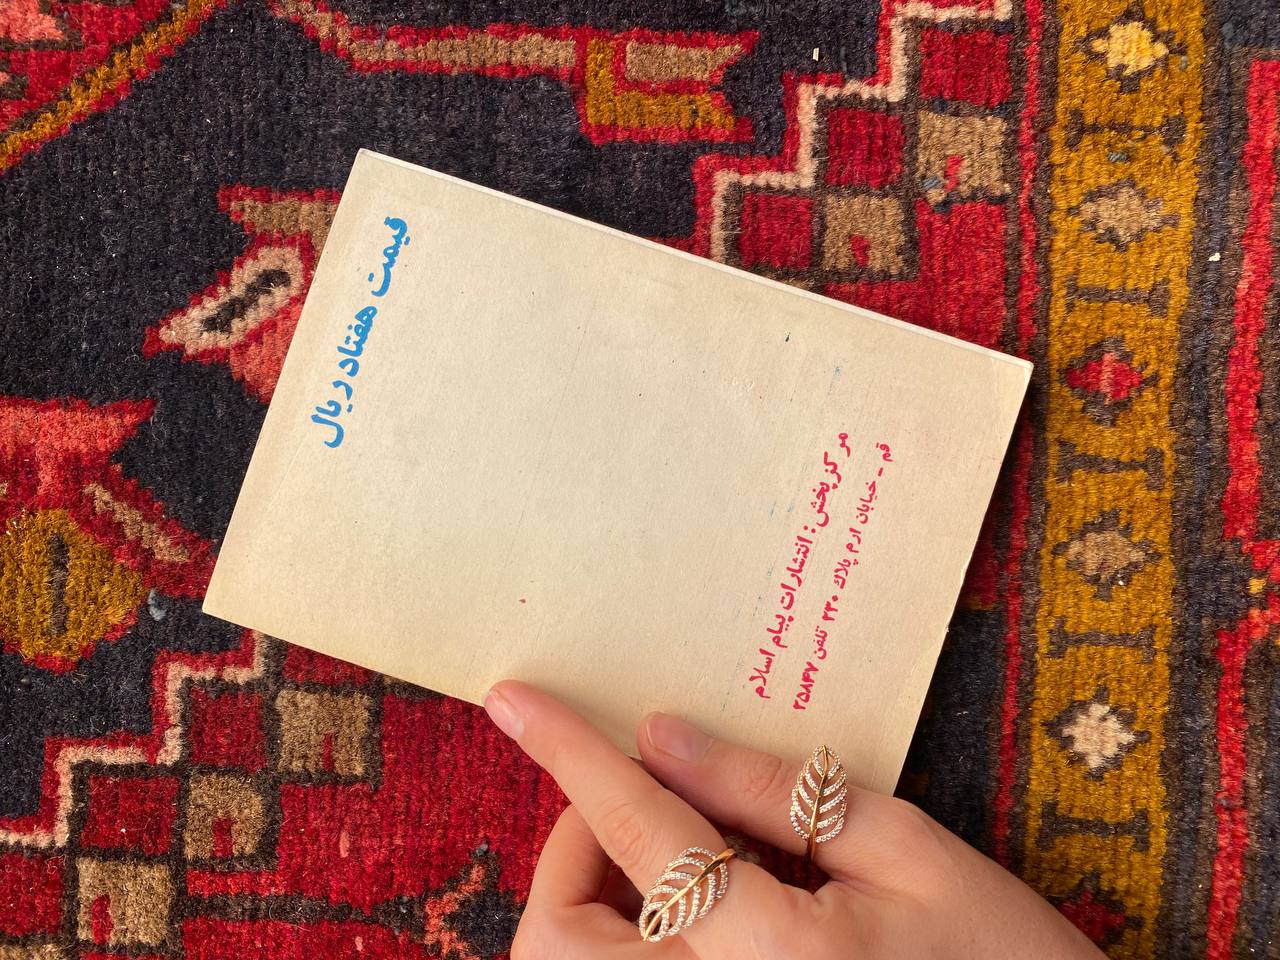 قیمت هفتاد ریال
مرکز پخش: انتشارات پیام اسلام
قم - خیابان ارم پلاک ۲۳۰ تلفن ۲۵۸۴۷